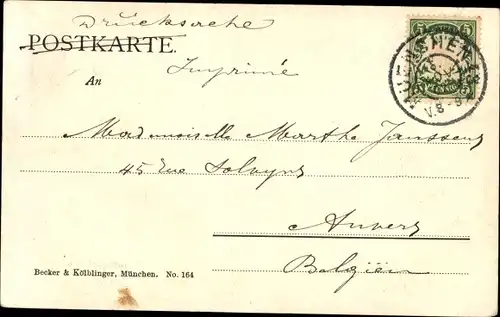 Drucksache
POSTKARTE.
Imprimé
An
Mademoiselle Marthe Janssens
45 rue Solvyns
Anvers
Belgien
Becker & Kölblinger, München. No. 164
5 5
MUENCHEN
V. 8-9